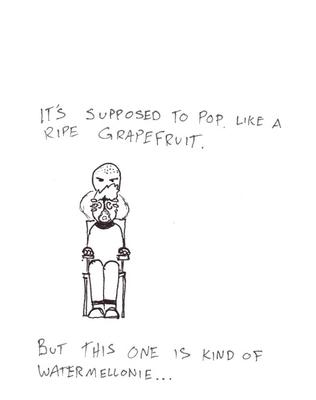 IT'S SUPPOSED TO POP. LIKE A
RIPE GRAPEFRUIT.
BUT THIS ONE IS KIND OF
WATERMELLONIE...